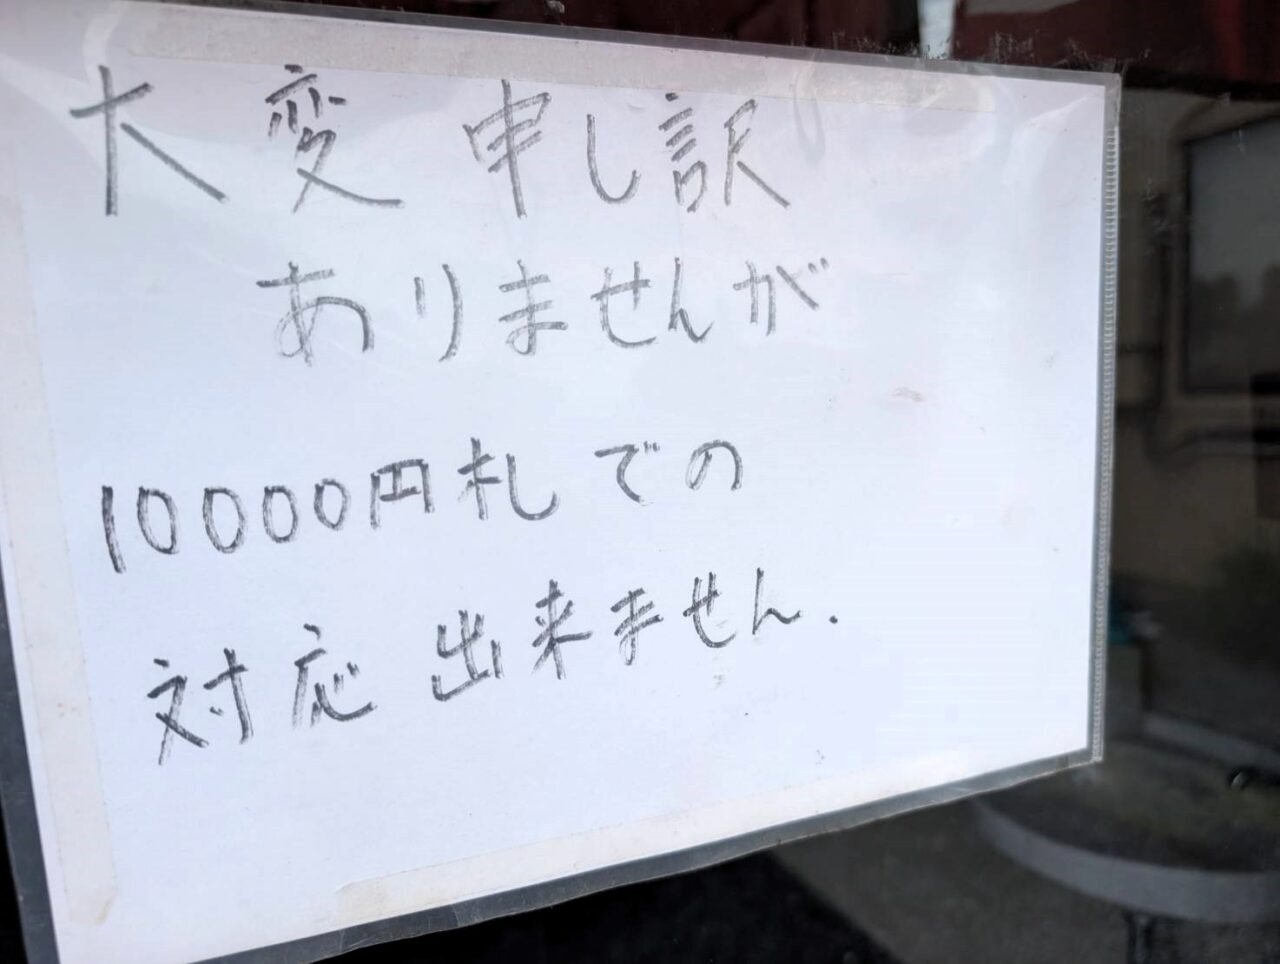 大変申し訳
ありませんが
10000円札での
対応出来ません.